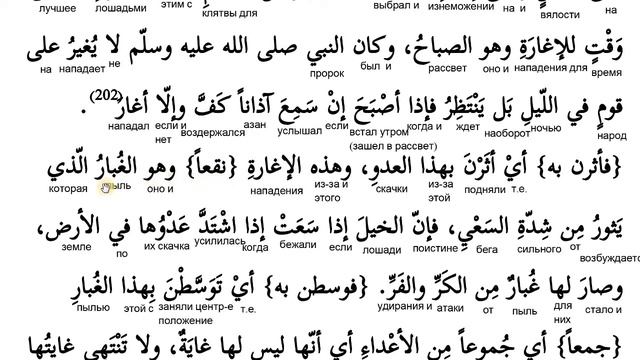 лучшее лошадьми этим с клятвы для выбрал и изнеможении на и вялости на
وَقْتٍ للإغارَةِ وهو الصباحُ، وكان النبي صلى الله عليه وسلّم لا يُغيرُ على
на нападает не пророк был и рассвет оно и нападения для время
قومٍ في اللّيلِ بَل يَنْتَظِرُ فإذا أَصْبَحَ إنْ سَمِعَ آذاناً كَفَّ وإلّا أغارَ(202).
нападал если и нет воздержался азан услышал если встал утром (зашел в рассвет) когда и ждет наоборот ночью народ
{فأثرن به} أيْ أثَرْنَ بهذا العدوِ، وهذه الإغارةِ {نقعاً} وهو الغُبارُ الّذي
которая пыль оно и нападения из-за и этого скачки из-за этой подняли т.е.
يَثورُ مِن شِدّةِ السَعْيِ، فإنّ الخيلَ إذا سَعَتْ إذا اشْتَدَّ عَدْوُها في الأرض،
земле по их скачка усилилась когда бежали если лошади поистине бега сильного от возбуждает
وصارَ لها غُبارٌ مِن الكَرِّ والفَرِّ. {فوسطن به} أيْ تَوَسَّطْنَ بِهذا الغُبارِ
пылью этой с заняли центр-е положение т.е. удирания и атаки от пыль для них стало и
{جمعاً} أي جُموعاً مِن الأعْداءِ أي أنّها ليس لها غايَةٌ، ولا تَنْتَهي غايتُها